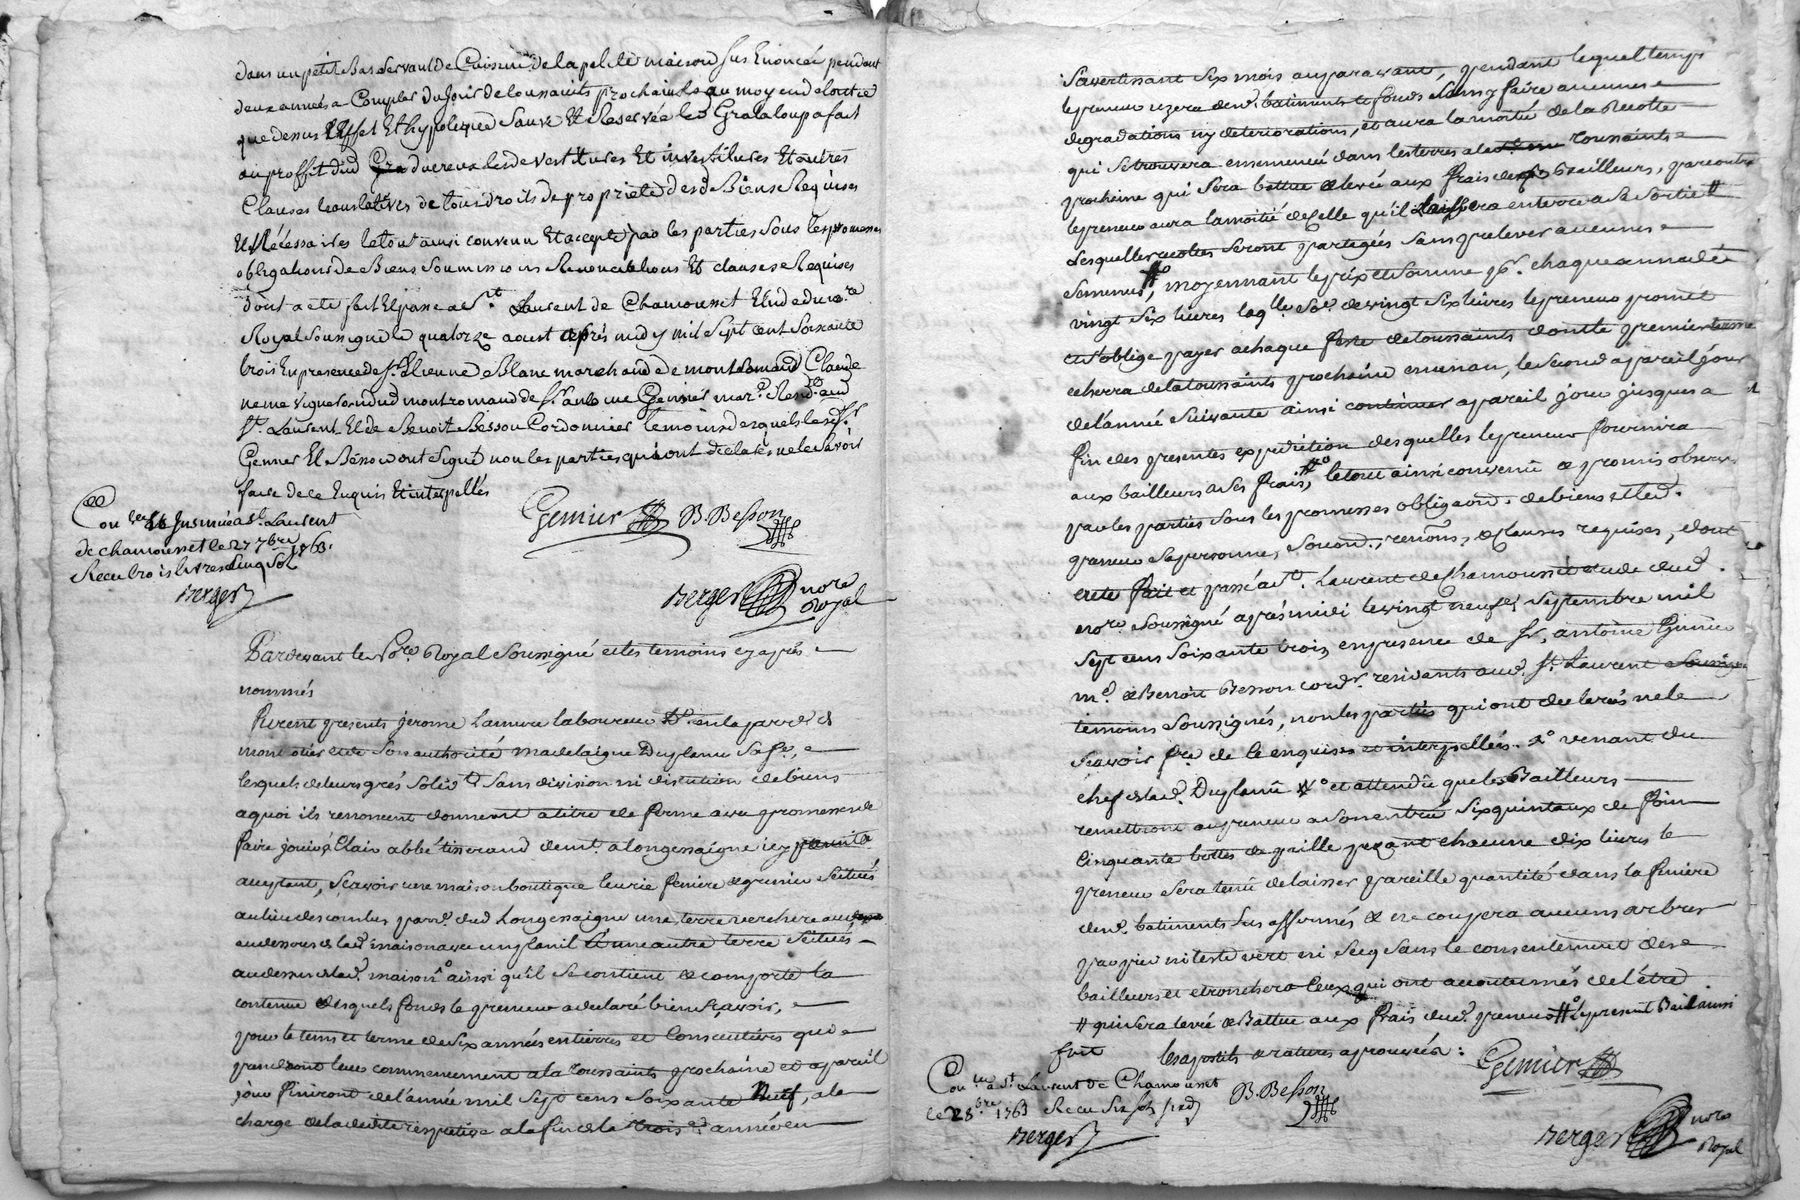 dans un petit Bas Servant de Cuisine de la petite maison sus Enoncée pendant
deux années a Compter du Jour de toussaints prochain le au moyen de loutre
que dessus Effet Et hypoteque Sauve Et Reservée led Grataloup a fait
au proffit dud Pra duereux les devestitures Et investitures Et autres
Clauses translatives de tous droits de proprieté desd Biens Requises
Et Nécessaires le tout ainsi convenu Et accepté par les parties Sous les promesses
obligations de Biens Soumissions Renonciations Et clauses Requises
dont acte fait Et passé a St Laurent de Chamousset Etude du nore
Royal Soussigné le quatorze aoust après midy mil Sept cent Soixante
trois En presence de Sr Etienne Blanc marchand de montromand Claude
neme Vigneron dud montromand de Sr antoine Gemier mar. Resid. aud
St. Laurent Et de Benoit Besson Cordonnier temoins desquels lesd Sr
Gemier Et Besson ont Signé non les parties qui ont déclaré ne le Savoir
faire de ce Enquis Et interpellés
Gemier B. Besson
Con lé Et Insinué a St Laurent
de chamousset le 27 7bre 1763.
Recu trois livres cinq Sol
Berger
Berger nore
Royal
Pardevant le Nore Royal Soussigné et les temoins cy après
nommés
Furent presents jerome Lamure laboureur en la parr. de
mont et de Son authorité madelaigne Duplenu Sa fe,
lesquels de leurs grés Solid. Sans division ni discution de biens
a quoi ils renoncent donnent a titre de ferme avec promesses de
faire jouir à Clair abbé tisserand demt. a longessaigne icy
acceptant, Scavoir une maison boutique Ecurie feniere & grenier Scitués
au lieu des combes parr. dud Longessaigne une terre verchere
au dessous de lad maison avec un plenil & une autre terre Scitués
au dessus de lad. maison ainsi qu'il Se contient & comporte la
contenue desquels fonds le preneur a declaré bien Scavoir,
pour le tems et terme de Six années entieres et Consécutives qui
prendront leur commencement a la toussaints prochaine et a pareil
jour finiront de l'année mil Sept cens Soixante Neuf, a la
charge de la dédite respective a la fin de la troise. année en
S'avertissant Six mois auparavant, pendant lequel temps
le preneur uzera desd. batiments & fonds Sans y faire aucunes
degradations ny deteriorations, et aura la moitié de la Recolte
qui Se trouvera ensemencée dans les terres a la toussaints
prochaine qui Sera battue & levée aux frais des bailleurs, par contre
le preneur aura la moitié de Celle qu'il Laissera en terre a Sa Sortie #
Lesquelles recoltes Seront partagées Sans prelever aucunes
Semences #°, moyennant le prix et Somme pr. chaque année de
vingt Six livres laqlle Soe. de vingt Six livres le preneur promet
et S'oblige payer a chaque feste de toussaints dont le premier terme
echerra de la toussaints prochaine en un an, le Second a pareil jour
de l'année Suivante ainsi continuer a pareil jour jusques a
fin des presentes expedition desquelles le preneur fournira
aux bailleurs a Ses frais, #° le tout ainsi convenu & promis observer
par les parties Sous les promesses obligaons. de biens et led.
preneur Sa personne, Soumis., renons. & Clauses requises, dont
acte fait et passé a St. Laurent de Chamousset etude dud.
nore. Soussigné après midi le vingt neuf Septembre mil
Sept cens Soixante trois, en presence de Sr. antoine Gemier
md. & Benoit Besson cordr. residants aud. St. Laurent
temoins Soussignés, non les parties qui ont declarés ne le
Scavoir fre de Ce enquises et interpellées. #° venant du
chef de lad. Duplenu #° et attendu que les Bailleurs
remettront au preneur a Son entrée Six quintaux de foin
Cinquante bottes de paille pezant chacune dix livres le
preneur Sera tenu de laisser pareille quantité dans la feniere
desd. batiments Sus affermés & ne coupera aucuns arbres
par pied ni teste vert ni Secq Sans le consentement des
bailleurs et etronchera Ceux qui ont accoutumés de l'être
# qui Sera levée & Battue aux frais dud. preneur #° le present Bail ainsi
fait les apostils & ratures approuvées :
Gemier
B. Besson
Con lé a St Laurent de Chamousset
le 28 bre 1763 Recu Six sols
Berger
Berger nore
Royal